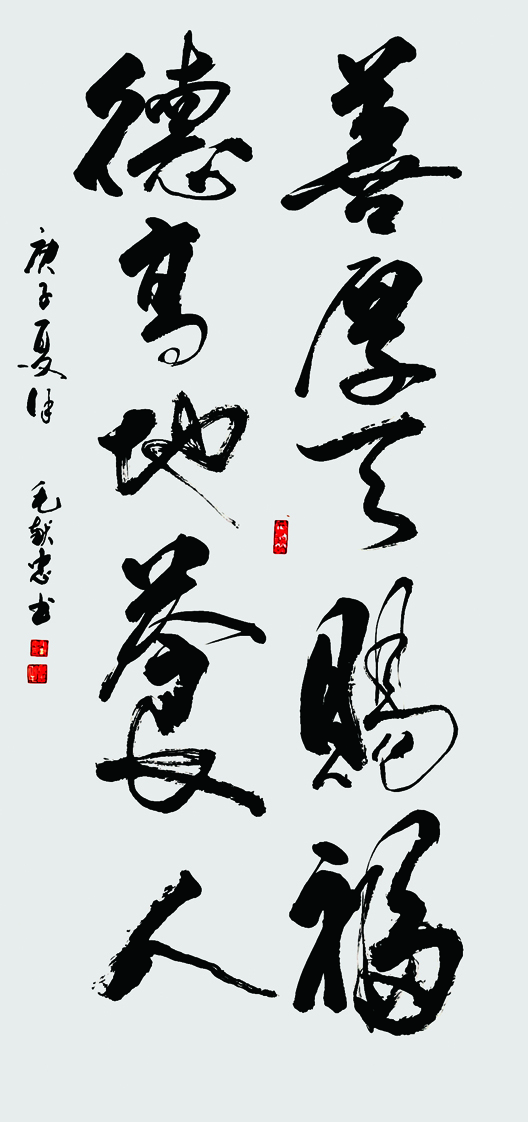 善厚天賜福
德高地養人
庚子夏月 毛献忠书